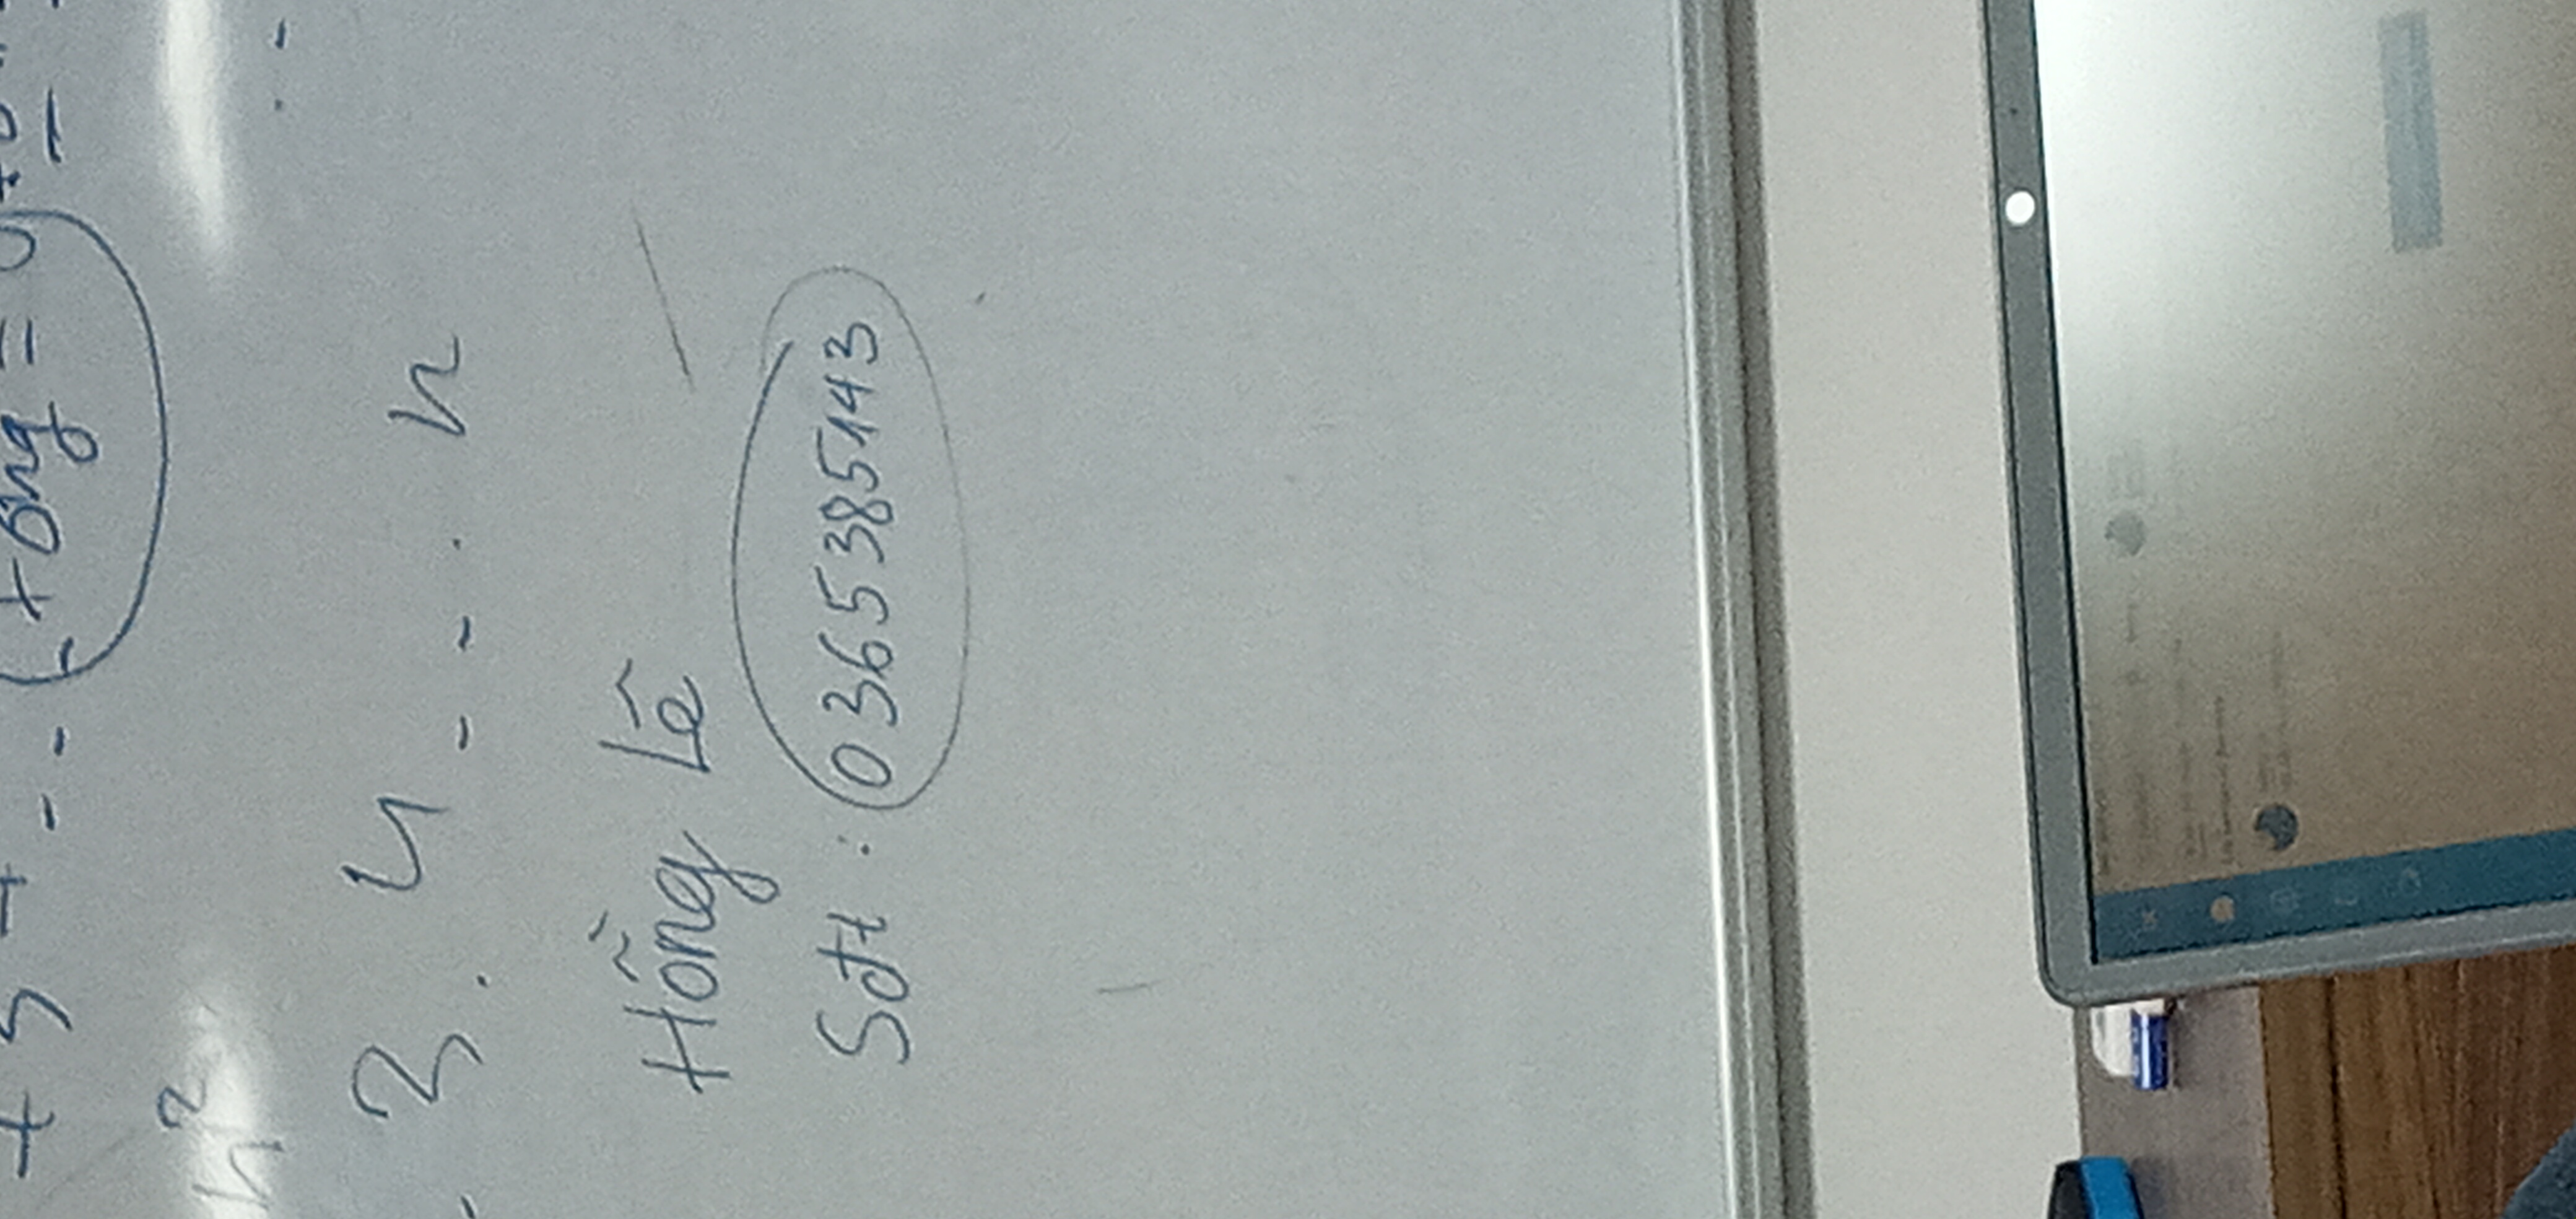 + 3 + . . . tổng = 0
n²
. 3 . 4 . . . . n
Hồng Lê
Sđt : 0365385143